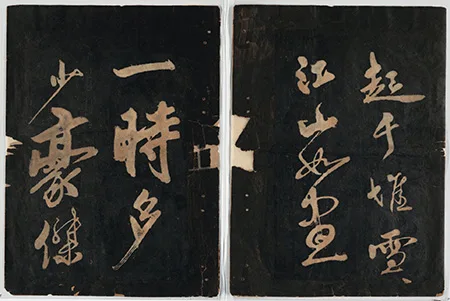 起千堆雪
江山如画
一時多
少豪傑